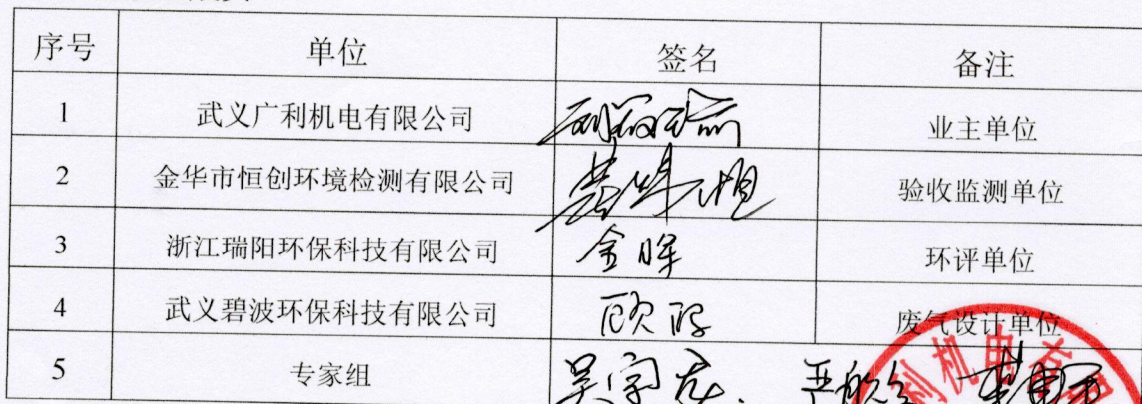 序号 单位 签名 备注
1 武义广利机电有限公司 业主单位
2 金华市恒创环境检测有限公司 验收监测单位
3 浙江瑞阳环保科技有限公司 金晖 环评单位
4 武义碧波环保科技有限公司 废气设计单位
5 专家组
利机电有